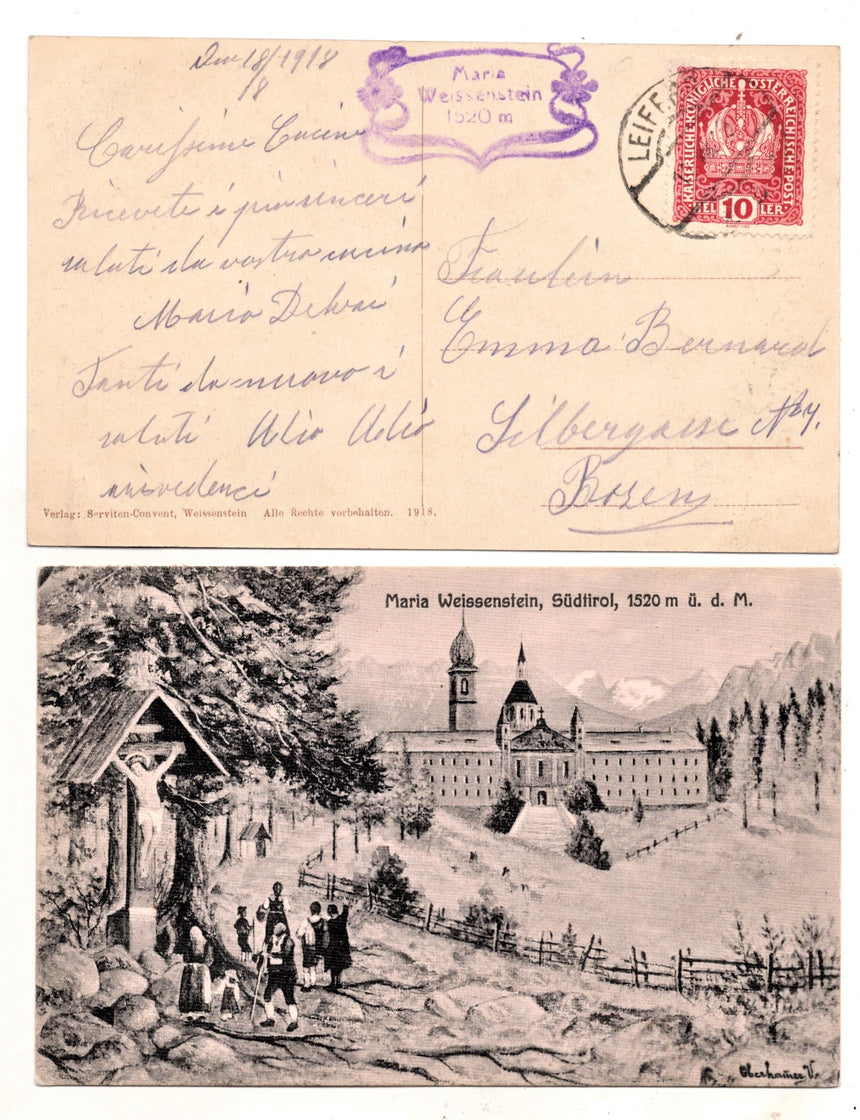 Den 18/1918
/8
Maria
Weissenstein
1520 m
LEIFE
KAISERLICHE KÖNIGLICHE ÖSTERREICHISCHE POST
HELLER
10
Carissime Cucine
Ricevete i piu sinceri
saluti da vostra cucina
Maria Delvai
Tanti da nuovo i
saluti Adio Adio
arivedenci
Fräulein
Emma Bernard
Silbergasse No 4.
Bozen
Verlag: Serviten-Convent, Weissenstein Alle Rechte vorbehalten. 1918.
Maria Weissenstein, Südtirol, 1520 m ü. d. M.